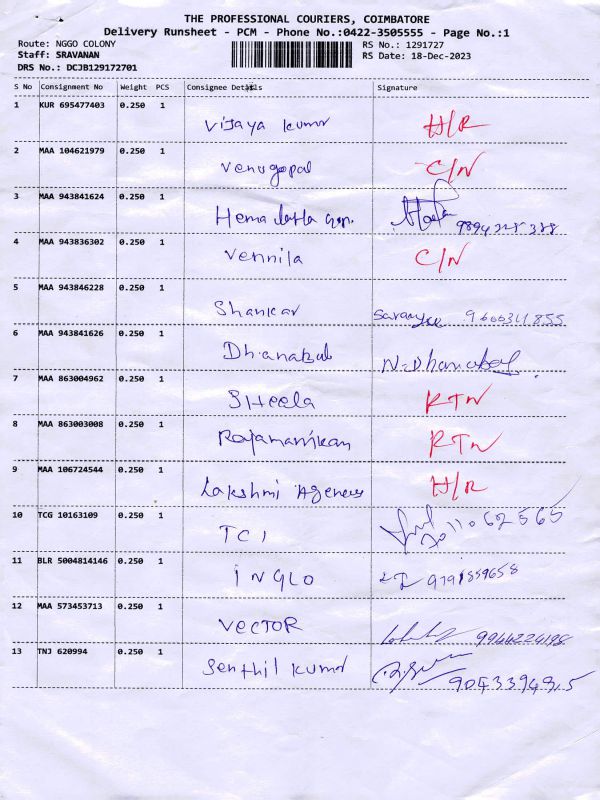 THE PROFESSIONAL COURIERS, COIMBATORE
Delivery Runsheet - PCM - Phone No.:0422-3505555 - Page No.:1
Route: NGGO COLONY RS No.: 1291727
Staff: SRAVANAN RS Date: 18-Dec-2023
DRS No.: DCJB129172701
S No Consignment No Weight PCS Consignee Details Signature
1 KUR 695477403 0.250 1
Vijaya kumar H/R
2 MAA 104621979 0.250 1
Venugopal C/N
3 MAA 943841624 0.250 1
Hema latha
4 MAA 943836302 0.250 1
Vennila C/N
5 MAA 943846228 0.250 1
Shankar
6 MAA 943841626 0.250 1
Dhanabal N. Dhanabal
7 MAA 863004962 0.250 1
SHeela RTN
8 MAA 863003008 0.250 1
Rajamanikam RTN
9 MAA 106724544 0.250 1
Lakshmi Agencys H/R
10 TCG 10163109 0.250 1
TCI
11 BLR 5004814146 0.250 1
INGLO
12 MAA 573453713 0.250 1
VECTOR 9944224198
13 TNJ 620994 0.250 1
Senthil kumar